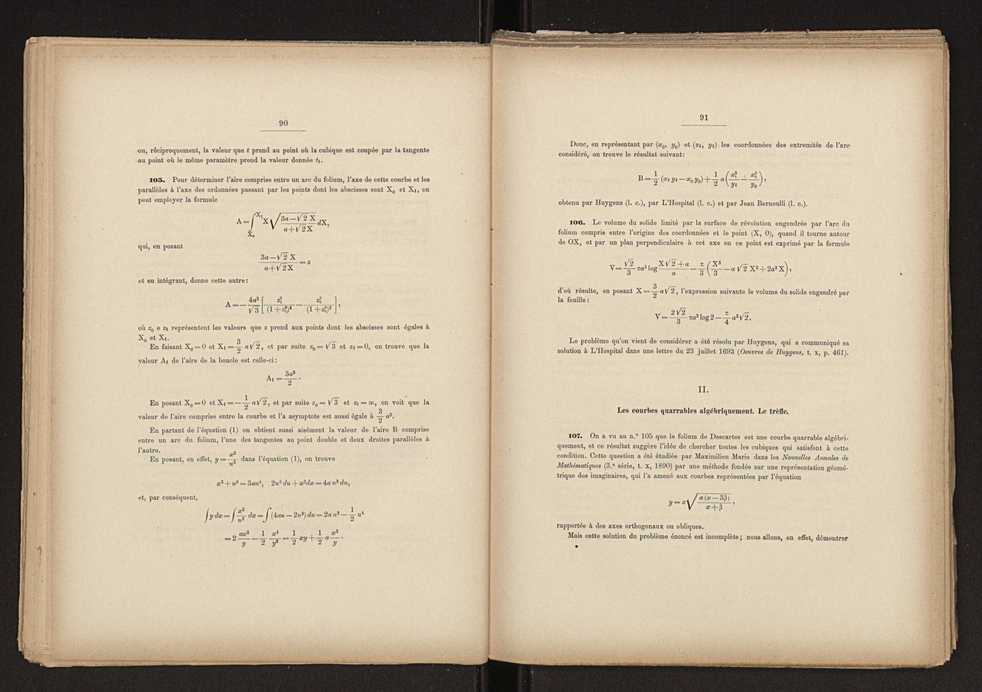 90
ou, réciproquement, la valeur que t prend au point où la cubique est coupée par la tangente
au point où le même paramètre prend la valeur donnée t₁.
105. Pour déterminer l'aire comprise entre un arc du folium, l'axe de cette courbe et les
parallèles à l'axe des ordonnées passant par les points dont les abscisses sont X₀ et X₁, on
peut employer la formule
A = ∫_{X₀}^{X₁} X √((3a − √2 X)/(a + √2 X)) dX,
qui, en posant
(3a − √2 X)/(a + √2 X) = z
et en intégrant, donne cette autre:
où z₀ e z₁ représentent les valeurs que z prend aux points dont les abscisses sont égales à
X₀ et X₁.
En faisant X₀ = 0 et X₁ = 3/2 a√2, et par suite z₀ = √3 et z₁ = 0, on trouve que la
valeur A₁ de l'aire de la boucle est celle-ci:
A₁ = 3a²/2 .
En posant X₀ = 0 et X₁ = − 1/2 a√2, et par suite z₀ = √3 et z₁ = ∞, on voit que la
valeur de l'aire comprise entre la courbe et l'asymptote est aussi égale à 3/2 a².
En partant de l'équation (1) on obtient aussi aisément la valeur de l'aire B comprise
entre un arc du folium, l'une des tangentes au point double et deux droites parallèles à
l'autre.
En posant, en effet, y = x²/u² dans l'équation (1), on trouve
et, par conséquent,
∫ y dx = ∫ x²/u² dx = ∫ (4au − 2u³) du = 2a u² − 1/2 u⁴
= 2 ax²/y − 1/2 x⁴/y² = 1/2 xy + 1/2 a x²/y .
91
Donc, en représentant par (x₀, y₀) et (x₁, y₁) les coordonnées des extremités de l'arc
considéré, on trouve le résultat suivant:
B = 1/2 (x₁ y₁ − x₀ y₀) + 1/2 a (x₁²/y₁ − x₀²/y₀),
obtenu par Huygens (l. c.), par L'Hospital (l. c.) et par Jean Bernoulli (l. c.).
106. Le volume du solide limité par la surface de révolution engendrée par l'arc du
folium compris entre l'origine des coordonnées et le point (X, 0), quand il tourne autour
de OX, et par un plan perpendiculaire à cet axe en ce point est exprimé par la formule
V = √2/3 πa³ log (X√2 + a)/a − π/3 (X³/3 − a√2 X² + 2a² X),
d'où résulte, en posant X = 3/2 a√2, l'expression suivante le volume du solide engendré par
la feuille:
V = 2√2/3 πa³ log 2 − π/4 a³√2.
Le problème qu'on vient de considérer a été résolu par Huygens, qui a communiqué sa
solution à L'Hospital dans une lettre du 23 juillet 1693 (Oeuvres de Huygens, t. x, p. 461).
II.
Les courbes quarrables algébriquement. Le trèfle.
107. On a vu au n.º 105 que le folium de Descartes est une courbe quarrable algébri-
quement, et ce résultat suggère l'idée de chercher toutes les cubiques qui satisfont à cette
condition. Cette question a été étudiée par Maximilien Marie dans les Nouvelles Annales de
Mathématiques (3.ᵉ série, t. x, 1890) par une méthode fondée sur une représentation géomé-
trique des imaginaires, qui l'a amené aux courbes représentées par l'équation
y = x √(α(x − 3β)/(x + β)),
rapportée à des axes orthogonaux ou obliques.
Mais cette solution du problème énoncé est incomplète; nous allons, en effet, démontrer